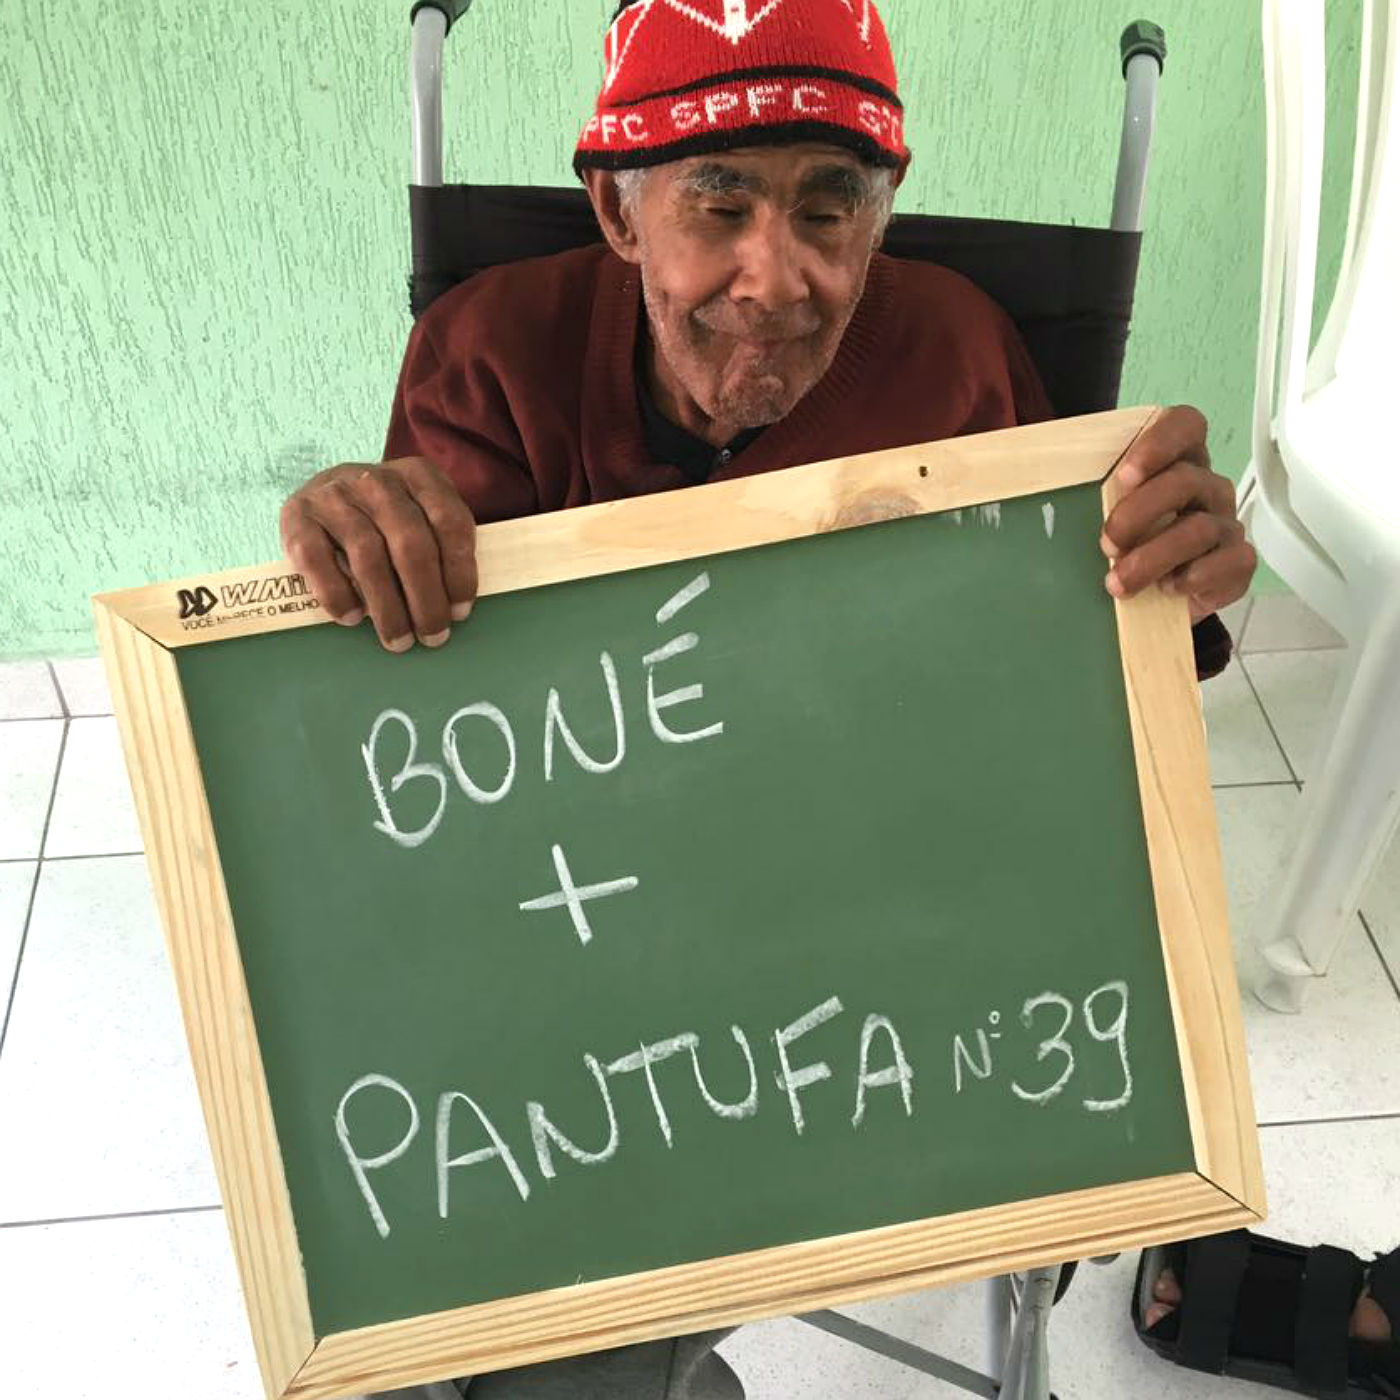 PFC SPFC S
VOCÊ MERECE O MELHO
BONÉ
+
PANTUFA Nº 39